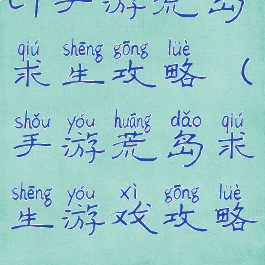 手游荒岛
qiú shēng gōng lüè
求生攻略（
shǒu yóu huāng dǎo qiú
手游荒岛求
shēng yóu xì gōng lüè
生游戏攻略